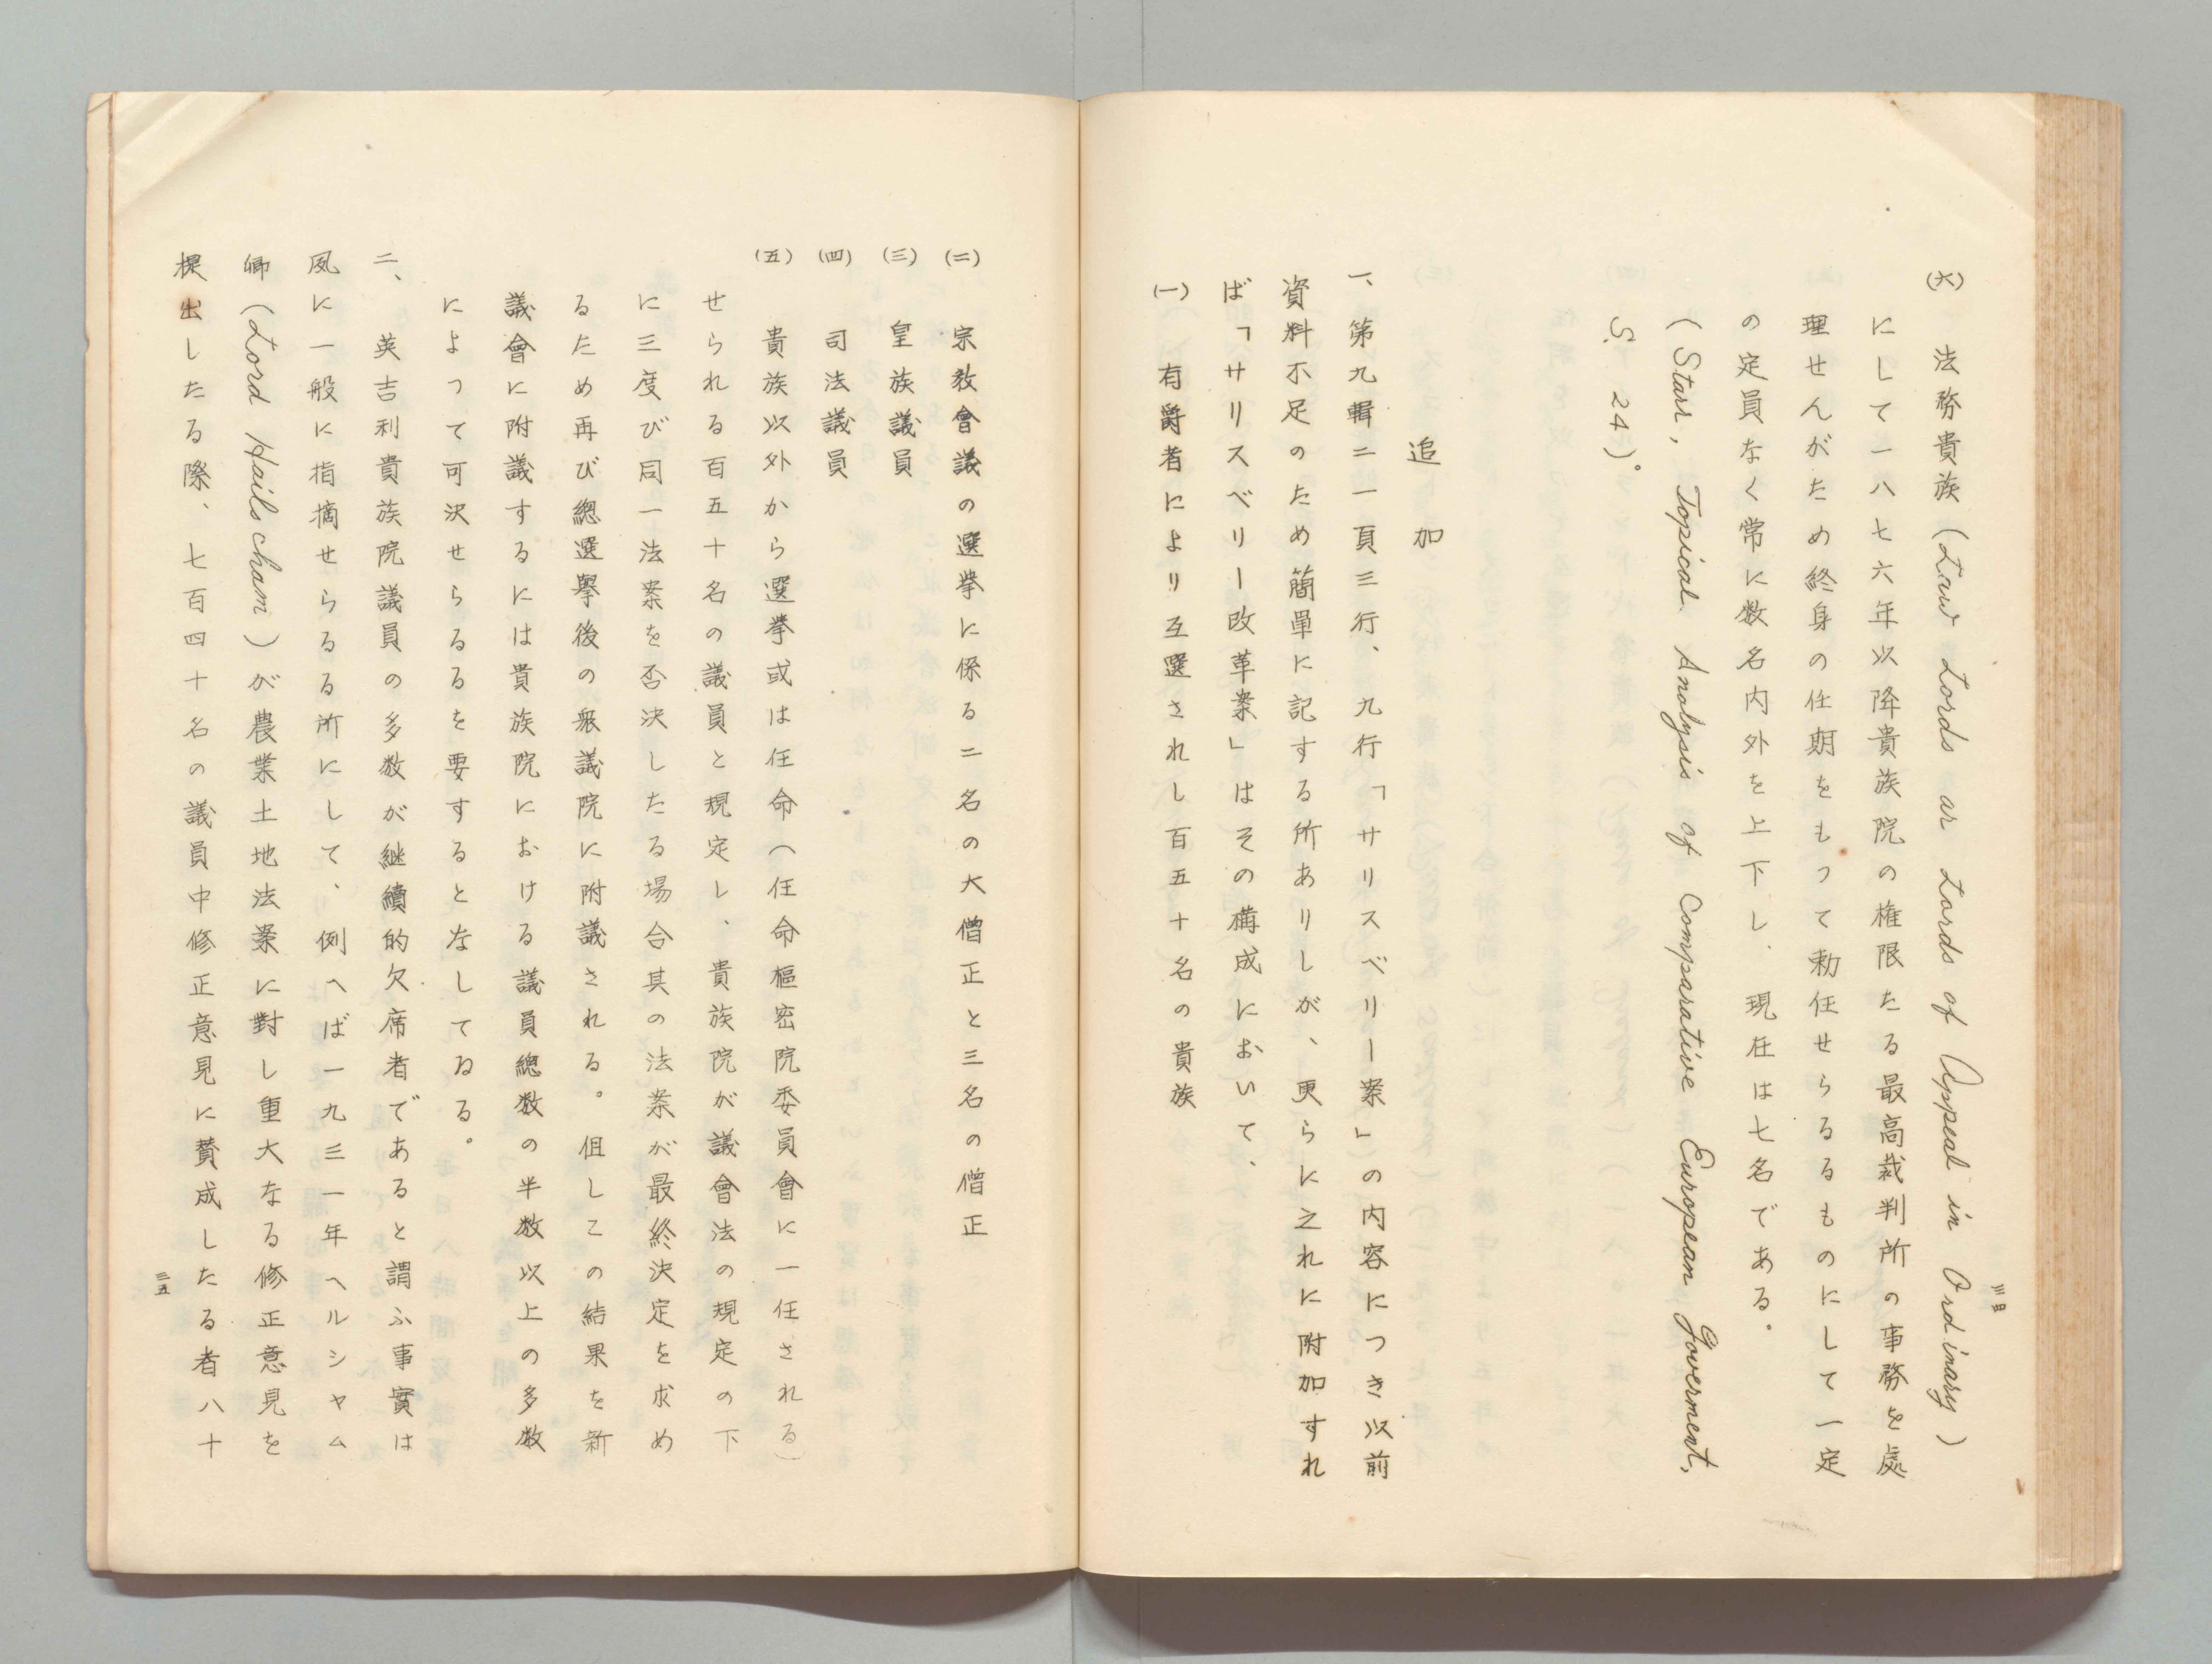 (六) 法務貴族(Law Lords or Lords of Appeal in Ordinary)
にして一八七六年以降貴族院の権限たる最高裁判所の事務を處
理せんがため終身の任期をもつて勅任せらるるものにして一定
の定員なく常に数名内外を上下し、現在は七名である。
(Star, Topical Analysis of Comparative European Goverment,
S. 24)。
追加
一、第九輯二一頁三行、九行「サリスベリー案」の内容につき以前
資料不足のため簡單に記する所ありしが、更らに之れに附加すれ
ば「サリスベリー改革案」はその構成において、
(一) 有爵者により互選されし百五十名の貴族
三四
(二) 宗教會議の選挙に係る二名の大僧正と三名の僧正
(三) 皇族議員
(四) 司法議員
(五) 貴族以外から選挙或は任命(任命樞密院委員會に一任される)
せられる百五十名の議員と規定し、貴族院が議會法の規定の下
に三度び同一法案を否決したる場合其の法案が最終決定を求め
るため再び總選擧後の衆議院に附議される。但しこの結果を新
議會に附議するには貴族院における議員總数の半数以上の多数
によつて可決せらるるを要するとなしてゐる。
二、英吉利貴族院議員の多数が継續的欠席者であると謂ふ事實は
夙に一般に指摘せらるる所にして、例へば一九三一年ヘルシャム
卿(Lord Hailscham)が農業土地法案に對し重大なる修正意見を
提出したる際、七百四十名の議員中修正意見に賛成したる者八十
三五